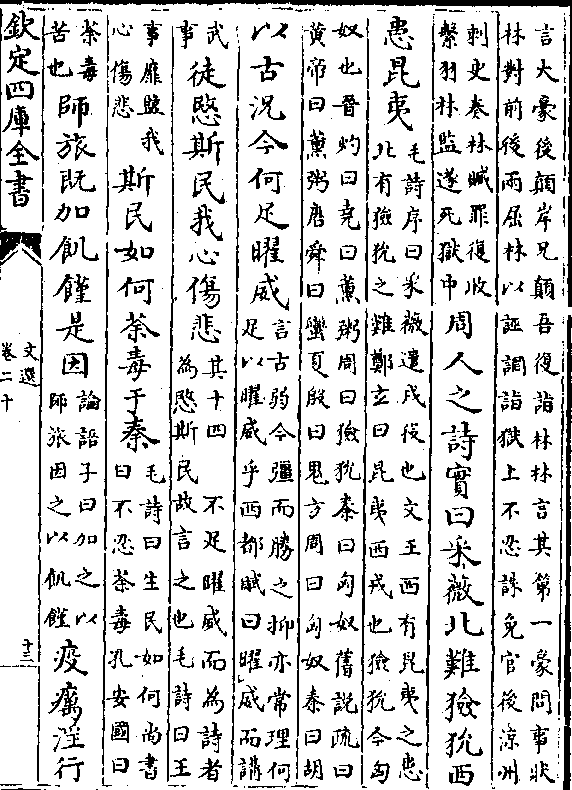 言大豪後顛岸兄顛吾復詣林林言其第一豪問事狀
林對前後兩屈林以誣調詣獄上不忍誅免官後涼州
刺史奏林贓罪復收
繫羽林監遂死獄中
周人之詩實曰采薇北難獫狁西
患昆夷
毛詩序曰采薇遣戍役也文王西有昆夷之患
北有獫狁之難鄭玄曰昆夷西戎也獫狁今匈
奴也晉灼曰堯曰薰粥周曰獫狁秦曰匈奴舊說疏曰
黃帝曰薰粥唐舜曰蠻夏殷曰鬼方周曰匈奴秦曰胡
以古況今何足曜威
言古弱今彊而勝之抑亦常理何
足以曜威乎西都賦曰曜威而講
武
事
徒愍斯民我心傷悲
其十四 不足曜威而為詩者
為愍斯民故言之也毛詩曰王
事靡監我
心傷悲
斯民如何荼毒于秦
毛詩曰生民如何尚書
曰不忍荼毒孔安國曰
荼毒
苦也
師旅既加飢饉是因
論語子曰加之以
師旅因之以飢饉
疫癘淫行
欽定四庫全書
文選
卷二十
十三